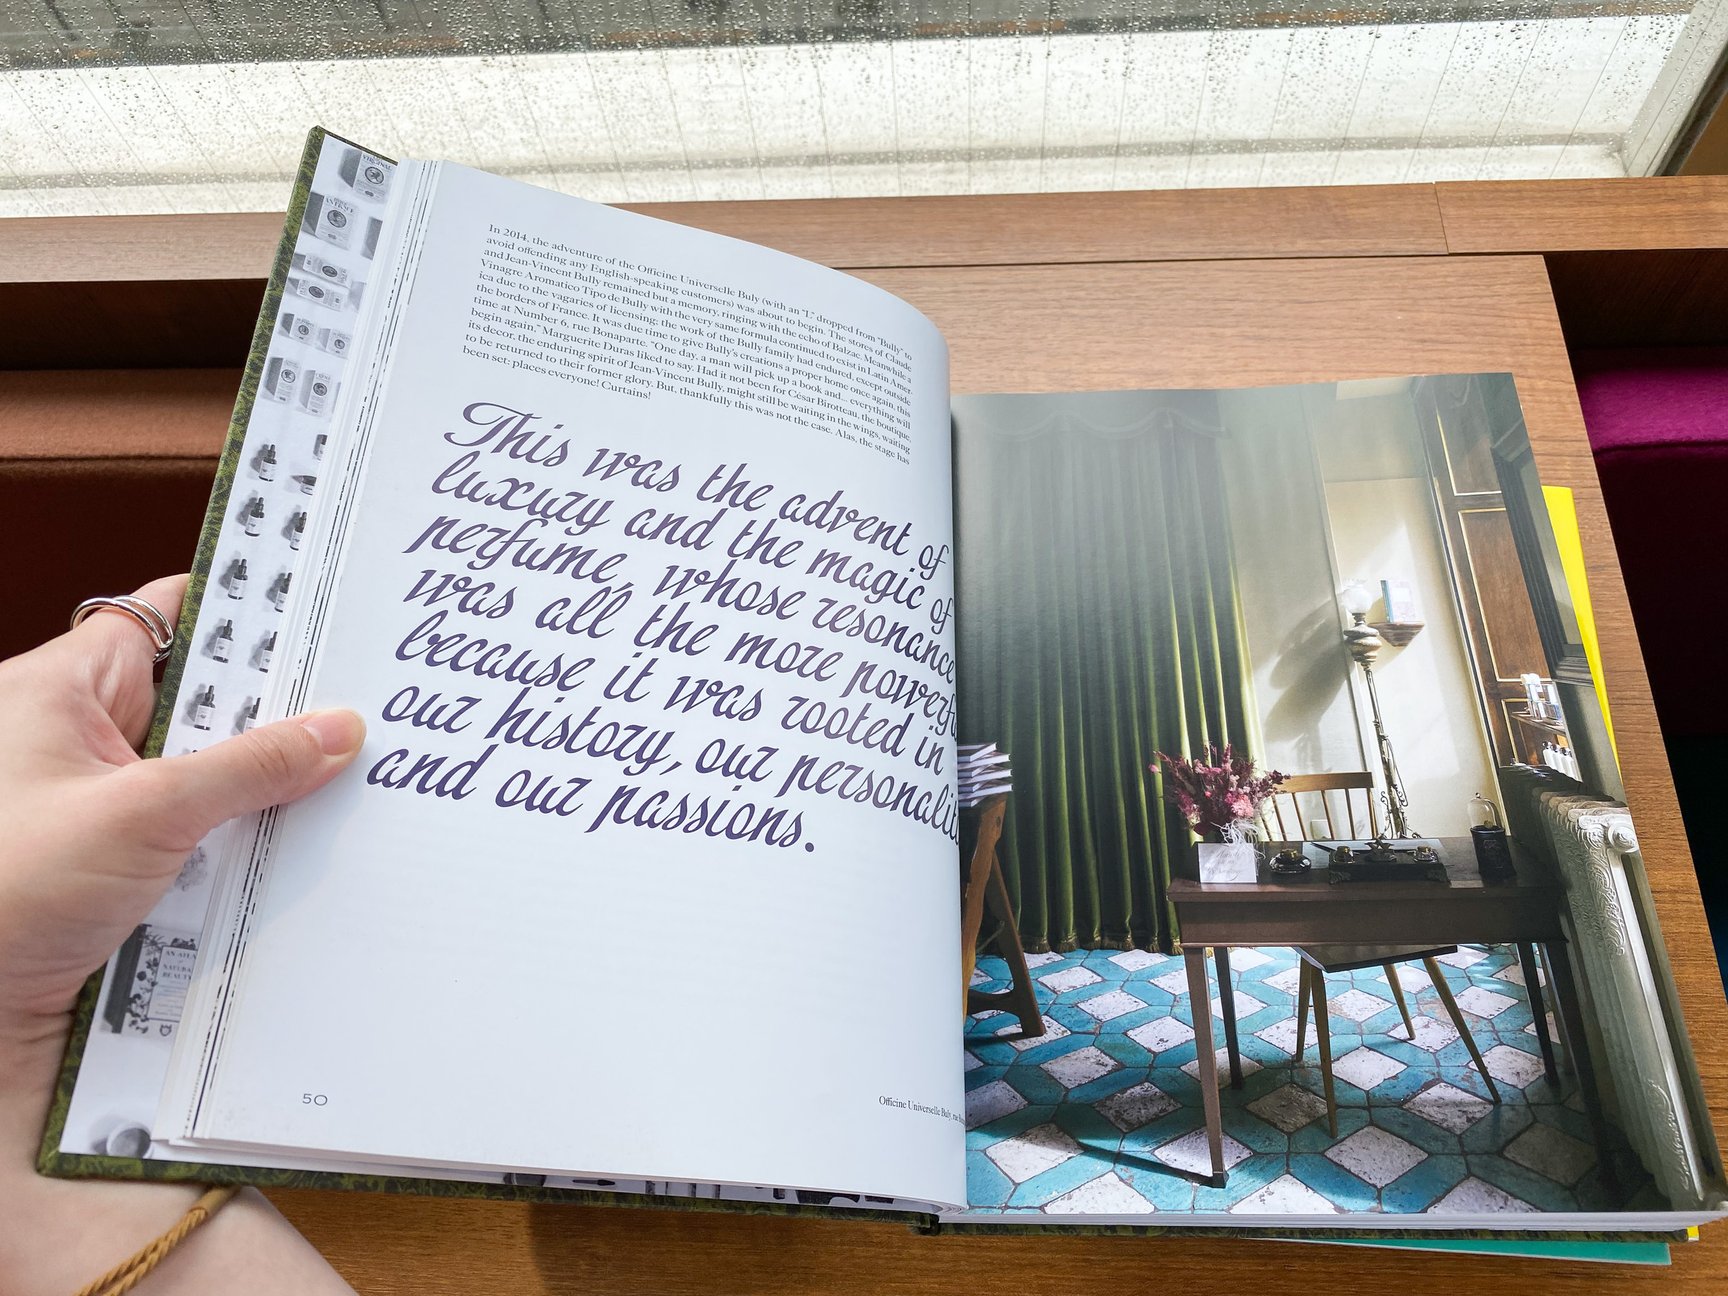 In 2014, the adventure of the Officine Universelle Buly (with an "L" dropped from "Bully" to
avoid offending any English-speaking customers) was about to begin. The stores of Claude
and Jean-Vincent Bully remained but a memory, ringing with the echo of Balzac. Meanwhile a
Vinagre Aromatico Tipo de Bully with the very same formula continued to exist in Latin Amer-
ica due to the vagaries of licensing: the work of the Bully family had endured, except outside
the borders of France. It was due time to give Bully's creations a proper home once again, this
time at Number 6, rue Bonaparte. "One day, a man will pick up a book and... everything will
begin again," Marguerite Duras liked to say. Had it not been for César Birotteau, the boutique,
its decor, the enduring spirit of Jean-Vincent Bully, might still be waiting in the wings, waiting
to be returned to their former glory. But, thankfully this was not the case. Alas, the stage has
been set; places everyone! Curtains!
This was the advent of
luxury and the magic of
perfume, whose resonance
was all the more powerfu
because it was rooted in
our history, our personalit
and our passions.
50
Officine Universelle Buly, rue
AN ATLA
NATURA
BEAUTY